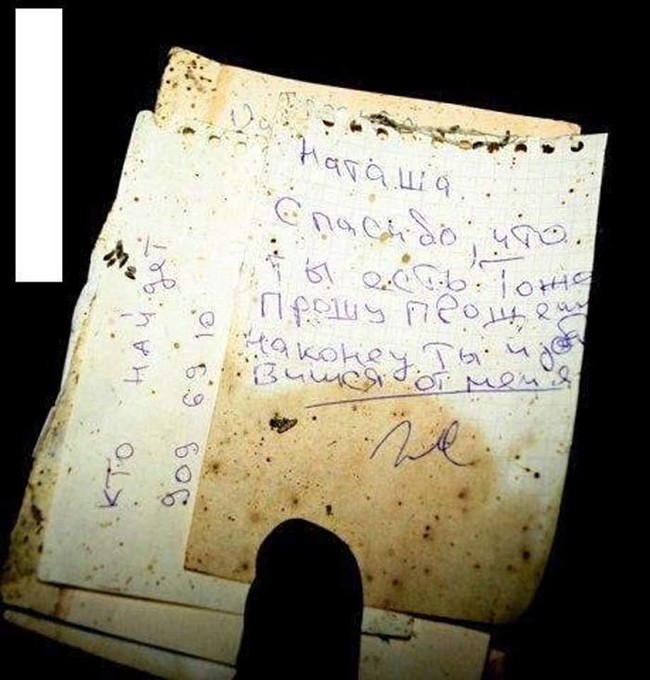 Наташа
Спасибо, что
ты есть. Тоже
Прошу прощени
Наконец ты изба
вишся от меня
кто найдет
909 69 10